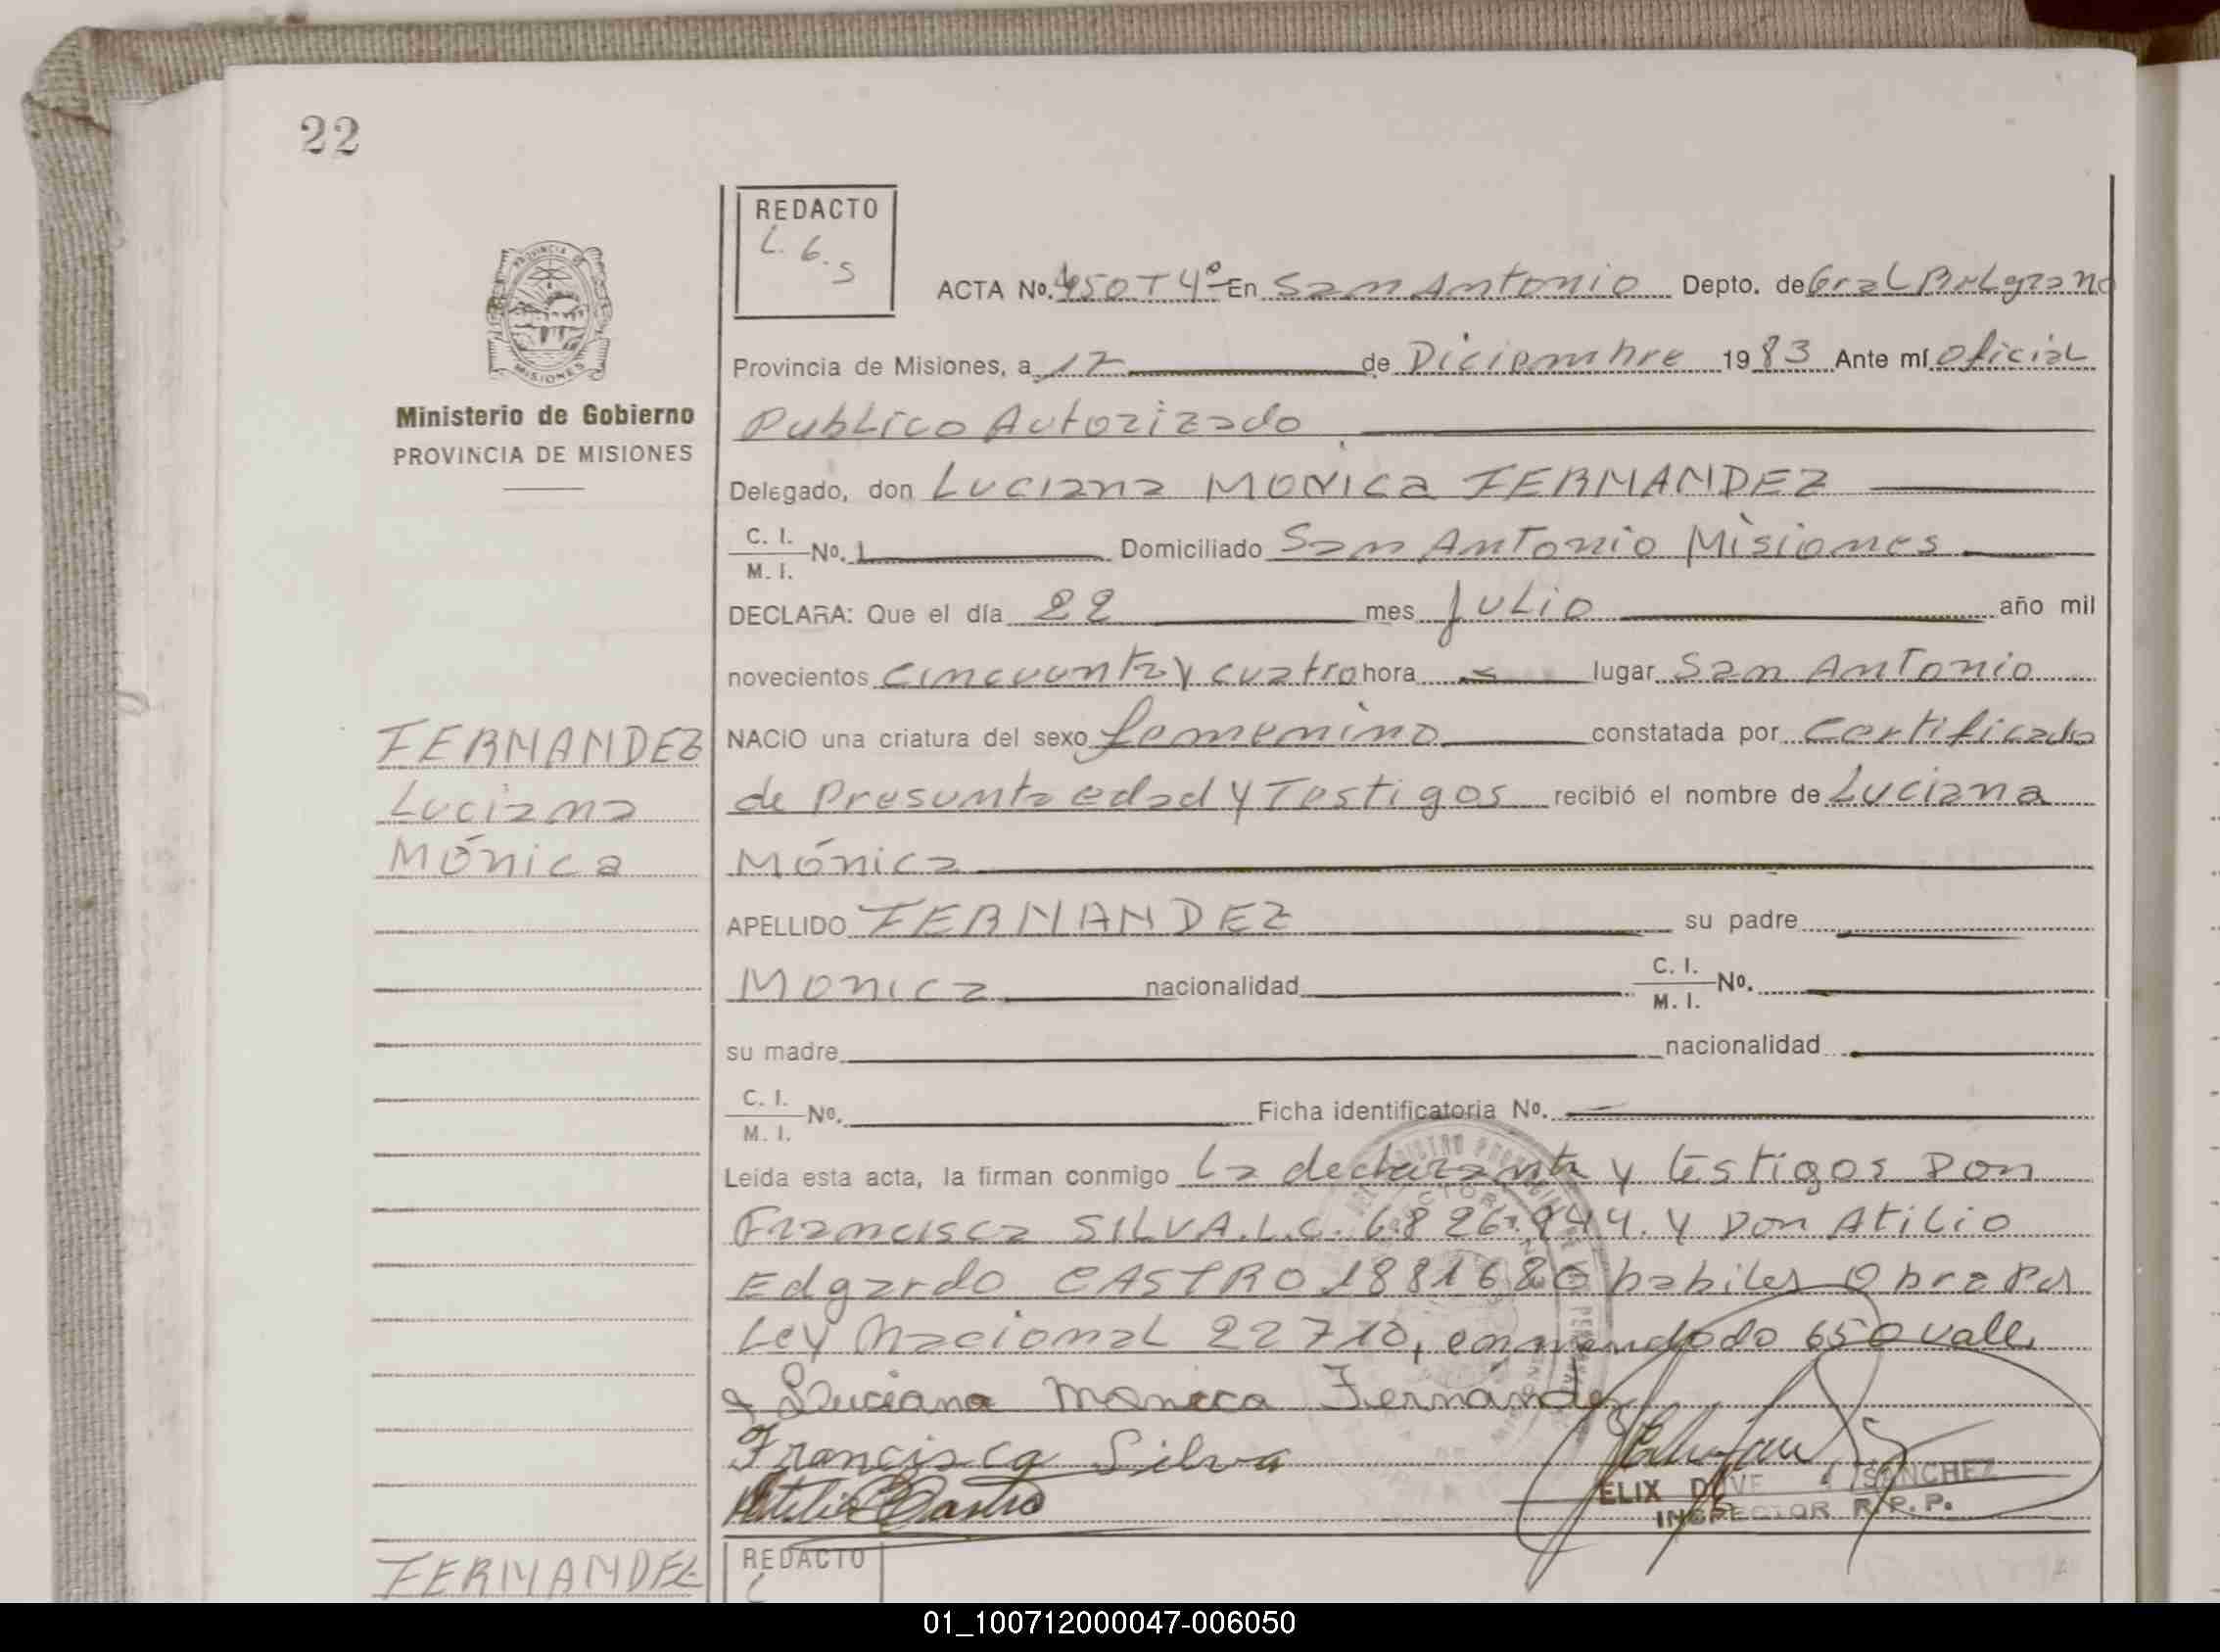 22
REDACTO
L. G. S
ACTA No. 450 T 4º En San Antonio Depto. de Gral Belgrano
Provincia de Misiones, a 17 de Diciembre 1983 Ante mí oficial
Publico Autorizado
Ministerio de Gobierno
PROVINCIA DE MISIONES
Delegado, don Luciana MONICA FERNANDEZ
C. I.
M. I. No. Domiciliado San Antonio Misiones
DECLARA: Que el día 22 mes Julio año mil
novecientos cincuenta y cuatro hora lugar San Antonio
FERNANDEZ
Luciana
Mónica
NACIO una criatura del sexo femenino constatada por certificado
de Presunta edad y Testigos recibió el nombre de Luciana
Mónica
APELLIDO FERNANDEZ su padre
Monica nacionalidad C. I. M. I. No.
su madre nacionalidad
C. I.
M. I. No. Ficha identificatoria No.
Leída esta acta, la firman conmigo La declarante y testigos Don
Francisca SILVA. L.C. 6.826.944. y Don Atilio
Edgardo CASTRO 1881680 habiles Obra Por
Ley Nacional 22710, enmendado 650 vale
Luciana Monica Fernández
Francisca Silva
Atilio Castro
ELIX SANCHEZ
INSPECTOR R.R.P.
FERNANDEZ
REDACTO
01_100712000047-006050